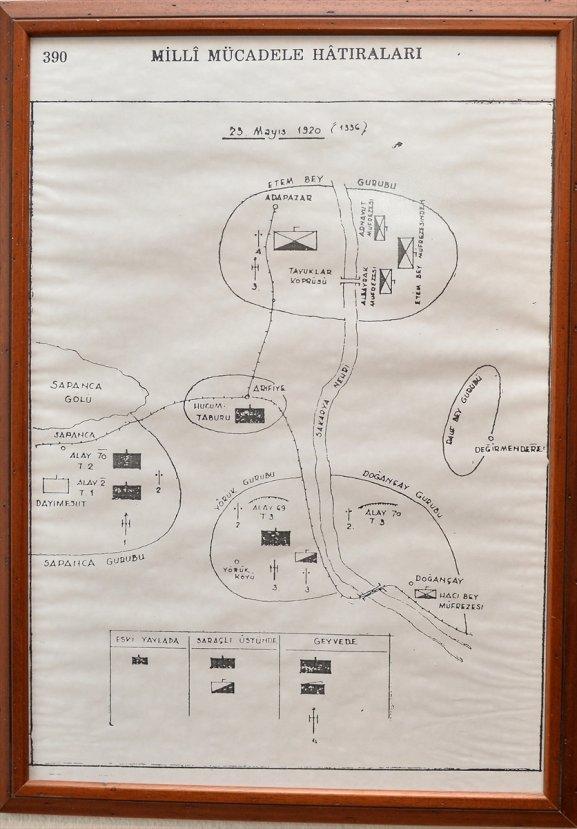 390
MİLLÎ MÜCADELE HÂTIRALARI
23 Mayıs 1920 (1336)
ETEM BEY GURUBU
ADAPAZAR
4
3
TAVUKLAR
KÖPRÜSÜ
ARNAVUT
MÜFREZESİ
ALBAYRAK
MÜFREZESİ
ETEM BEY MÜFREZESİNDEN
SAKARYA NEHRİ
SAPANCA
GÖLÜ
ARİFİYE
HÜCUM
TABURU
DAUT BEY GURUBU
DEĞİRMENDERE
SAPANCA
ALAY 70
T. 2
ALAY 2
T. 1
DAYIMESUT
2
1
SAPANCA GURUBU
YÖRÜK GURUBU
2
ALAY 69
T 3
YÖRÜK
KÖYÜ
3
3
DOĞANÇAY GURUBU
2
ALAY 70
T 3
DOĞANÇAY
HACI BEY
MÜFREZESİ
ESKİ YAYLADA
SARAÇLI ÜSTÜNDE
GEYVEDE